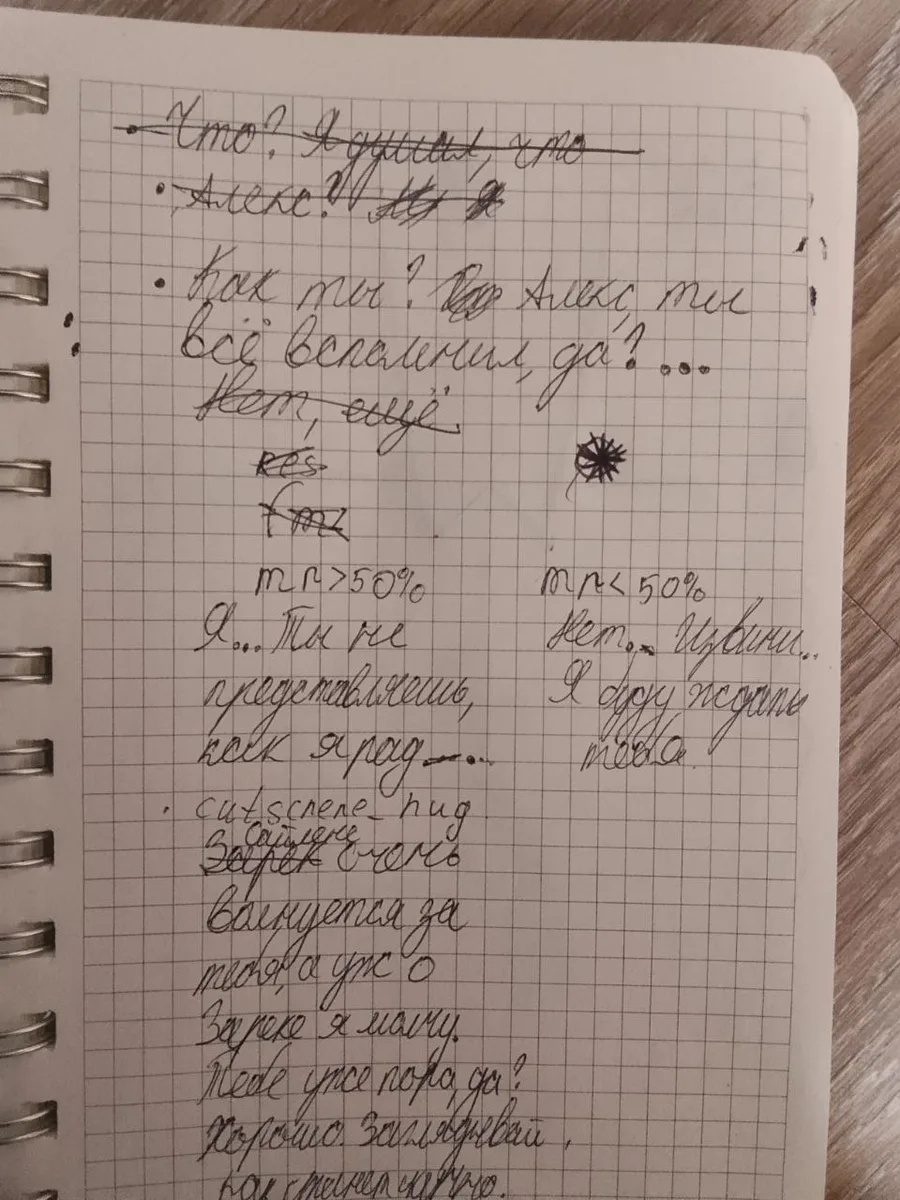 Что? Я думал, что
Алекс? Я
Как ты? Алекс, ты
всё вспомнил, да? ...
Нет, ещё
res
mn>50%
Я... Ты не
представляешь,
как я рад ...
mn<50%
Нет... Извини...
Я буду ждать
тебя.
cutscnene_nug
Сайлене
Зарек очень
волнуется за
тебя, а уж о
Зареке я молчу.
Тебе уже пора, да?
Хорошо. Заглядывай,
как станет скучно.